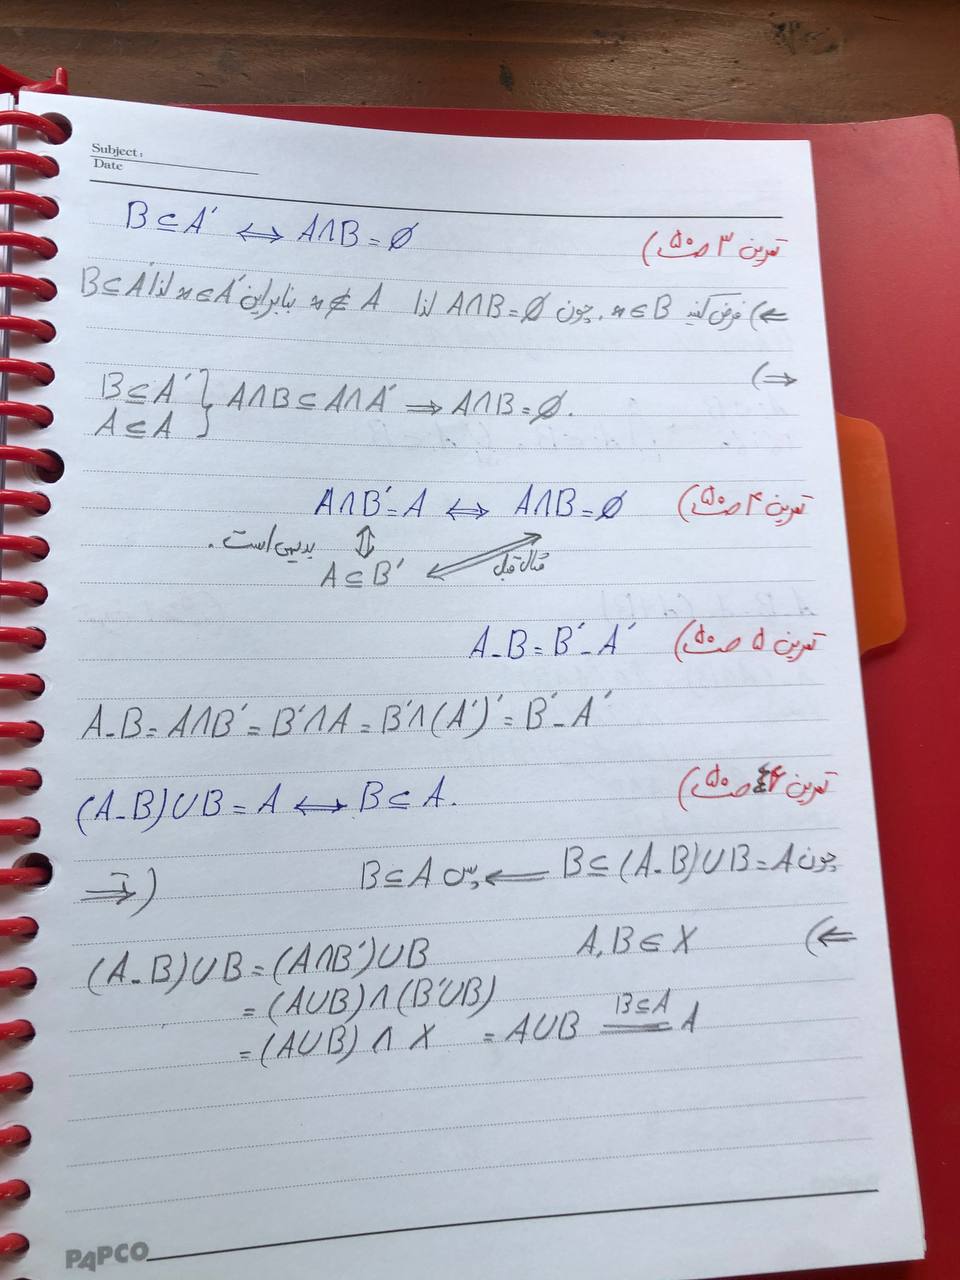 Subject:
Date
تمرین ۳ ص ۵۰) B ⊆ A′ ⟺ A∩B = ∅
⇐) فرض کنید x ∈ B. چون A∩B = ∅ لذا x ∉ A بنابراین x ∈ A′ لذا B ⊆ A′
⇒)
B ⊆ A′ } A∩B ⊆ A∩A′ ⇒ A∩B = ∅.
A ⊆ A
تمرین ۴ ص ۵۰) A∩B′ = A ⟺ A∩B = ∅
بدیهی است. ⇕ مثال قبل
A ⊆ B′ ⟺
تمرین ۵ ص ۵۰) A - B = B′ - A′
A - B = A∩B′ = B′∩A = B′∩(A′)′ = B′ - A′
تمرین ۶ ص ۵۰) (A - B)∪B = A ⟺ B ⊆ A.
⇒) چون B ⊆ (A - B)∪B = A ⟸ پس B ⊆ A
⇐) A, B ⊆ X
(A - B)∪B = (A∩B′)∪B
= (A∪B)∩(B′∪B)
= (A∪B) ∩ X = A∪B =(B⊆A)= A
PAPCO